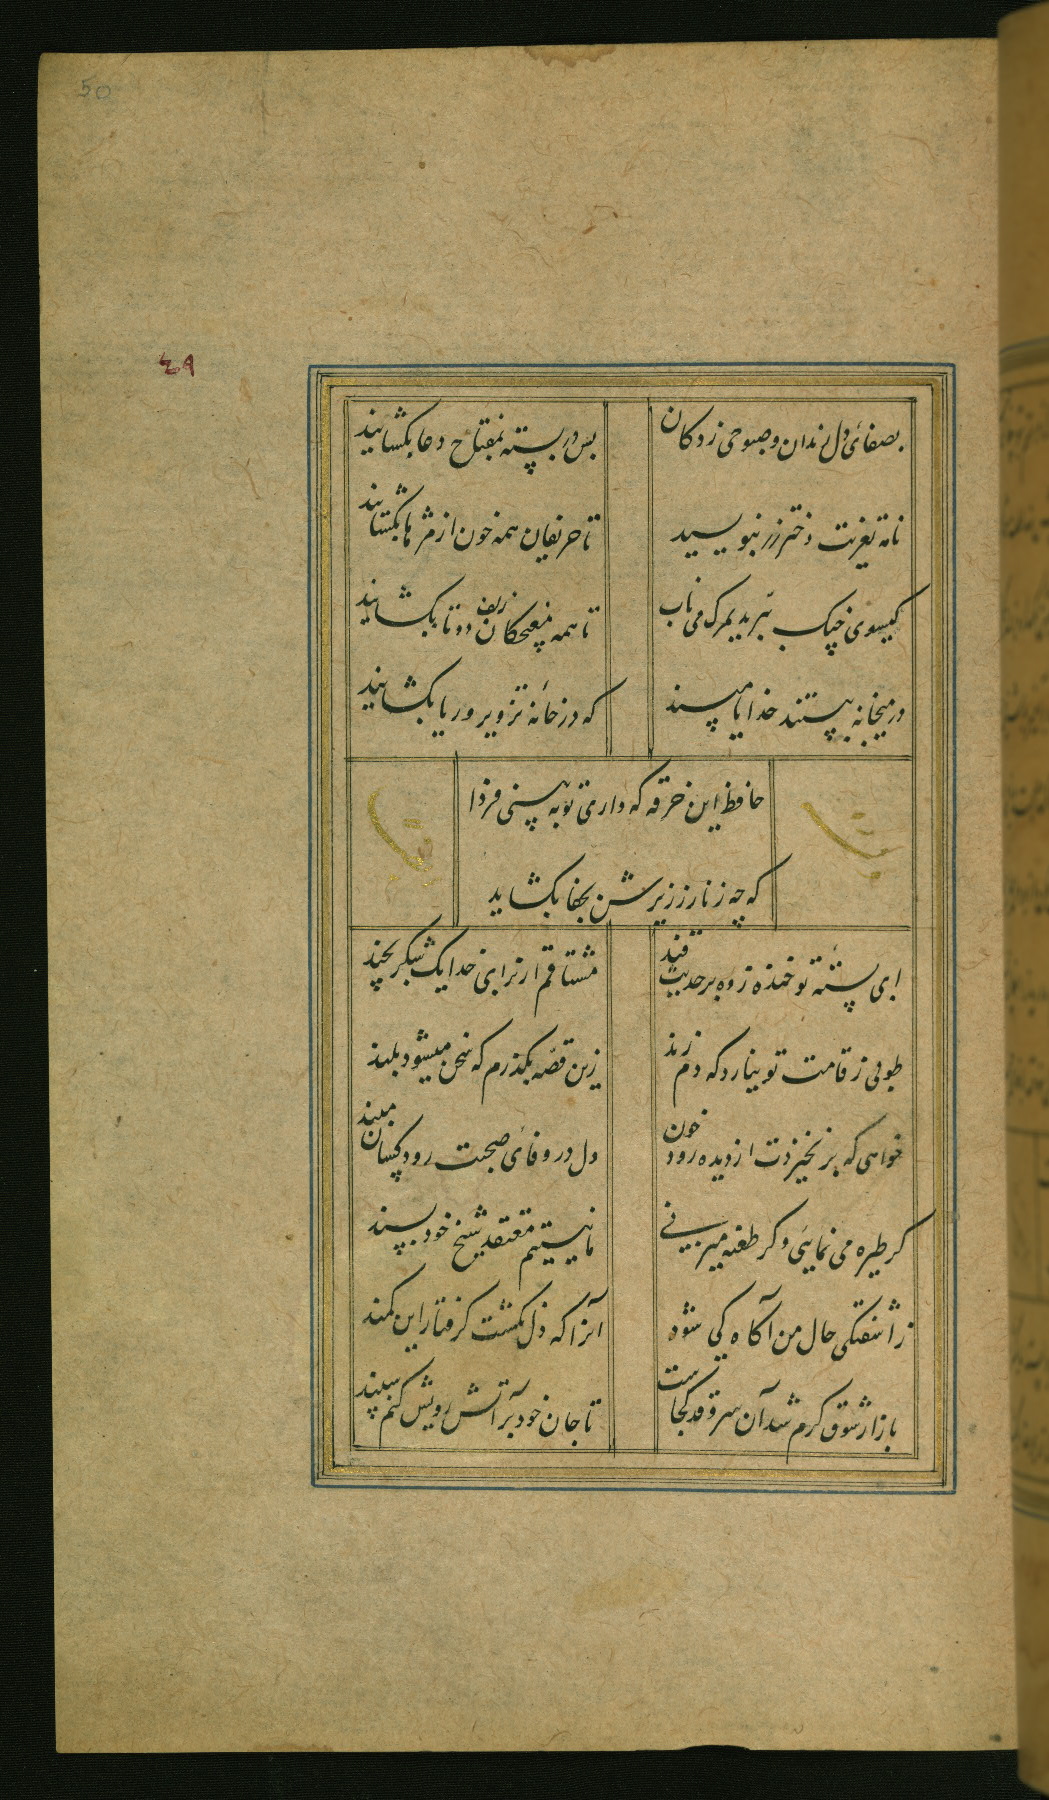 50
۴۹
بصفائی دل رندان و صبوحی زدکان
بس در بسته بمفتاح دعا بکشایند
نامه تعزیت دختر رز بنویسید
تا حریفان همه خون از مژها بکشایند
کیسوی چنک ببرید بمرک می ناب
تا همه مغبچکان زلف دو تا بکشایند
در میخانه ببستند خدایا مپسند
که در خانه تزویر و ریا بکشایند
حافظ این خرقه که داری تو ببینی فردا
که چه زنار ز زیرش بجفا بکشاید
ای پسته تو خنده زده بر حدیث قند
مشتاقم از برای خدا یک شکر بخند
طوبی ز قامت تو نیارد که دم زند
زین قصه بکذرم که سخن میشود بلند
خواهی که بر نخیزدت از دیده رود خون
دل در وفای صحبت رود کسان مبند
کر طیره می نمایی و کر طعنه میزنی
ما نیستیم معتقد شیخ خود پسند
ز آشفتکی حال من آکاه کی شود
آنرا که دل نکشت کرفتار این کمند
بازار شوق کرم شد آن سرو قد کجاست
تا جان خود بر آتش رویش کنم سپند